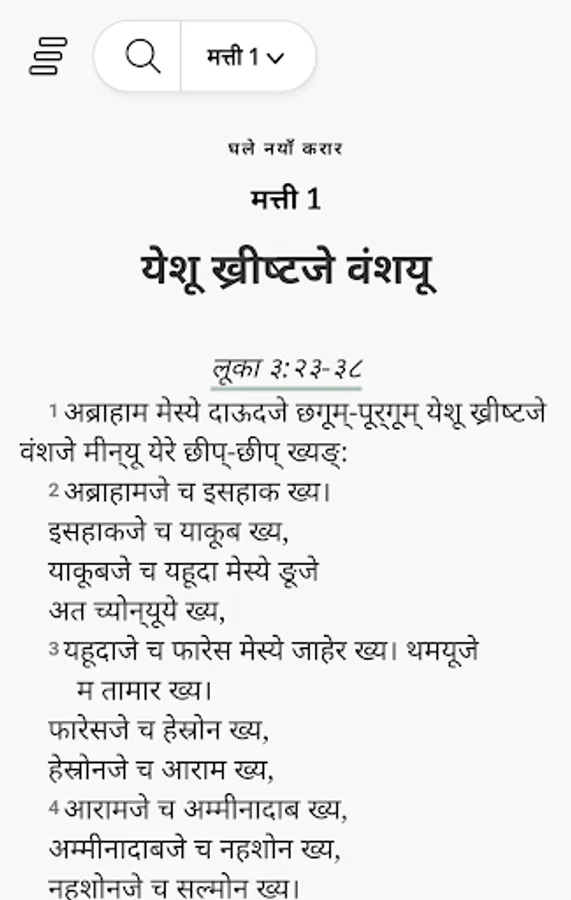 मत्ती 1
घले नयाँ करार
मत्ती 1
येशू ख्रीष्टजे वंशयू
लूका ३:२३-३८
1 अब्राहाम मेस्ये दाऊदजे छगूम्-पूर्‌गूम् येशू ख्रीष्टजे
वंशजे मीन्‌यू येरे छीप्-छीप् ख्यङ्:
2 अब्राहामजे च इसहाक ख्य।
इसहाकजे च याकूब ख्य,
याकूबजे च यहूदा मेस्ये ङूजे
अत च्योन्‌यूये ख्य,
3 यहूदाजे च फारेस मेस्ये जाहेर ख्य। थमयूजे
म तामार ख्य।
फारेसजे च हेस्रोन ख्य,
हेस्रोनजे च आराम ख्य,
4 आरामजे च अम्मीनादाब ख्य,
अम्मीनादाबजे च नहशोन ख्य,
नहशोनजे च सल्मोन ख्य।